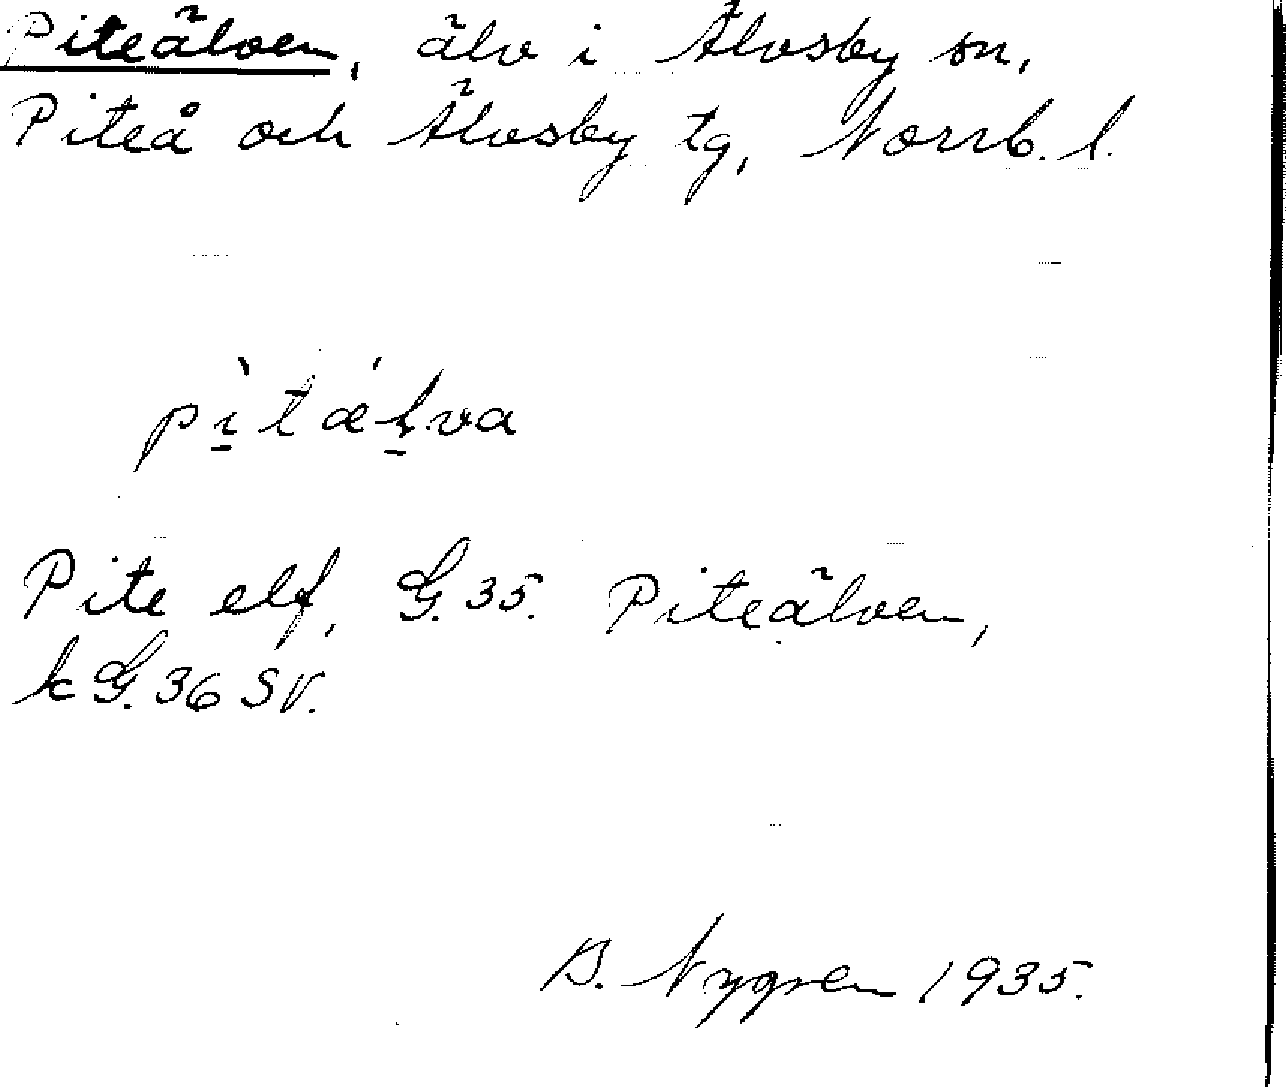 Piteälven, älv i Älvsby sn,
Piteå och Älvsby tg, Norrb. l.
pìtælva
Pite elf, G. 35. Piteälven,
k G. 36 SV.
B. Nygren 1935.